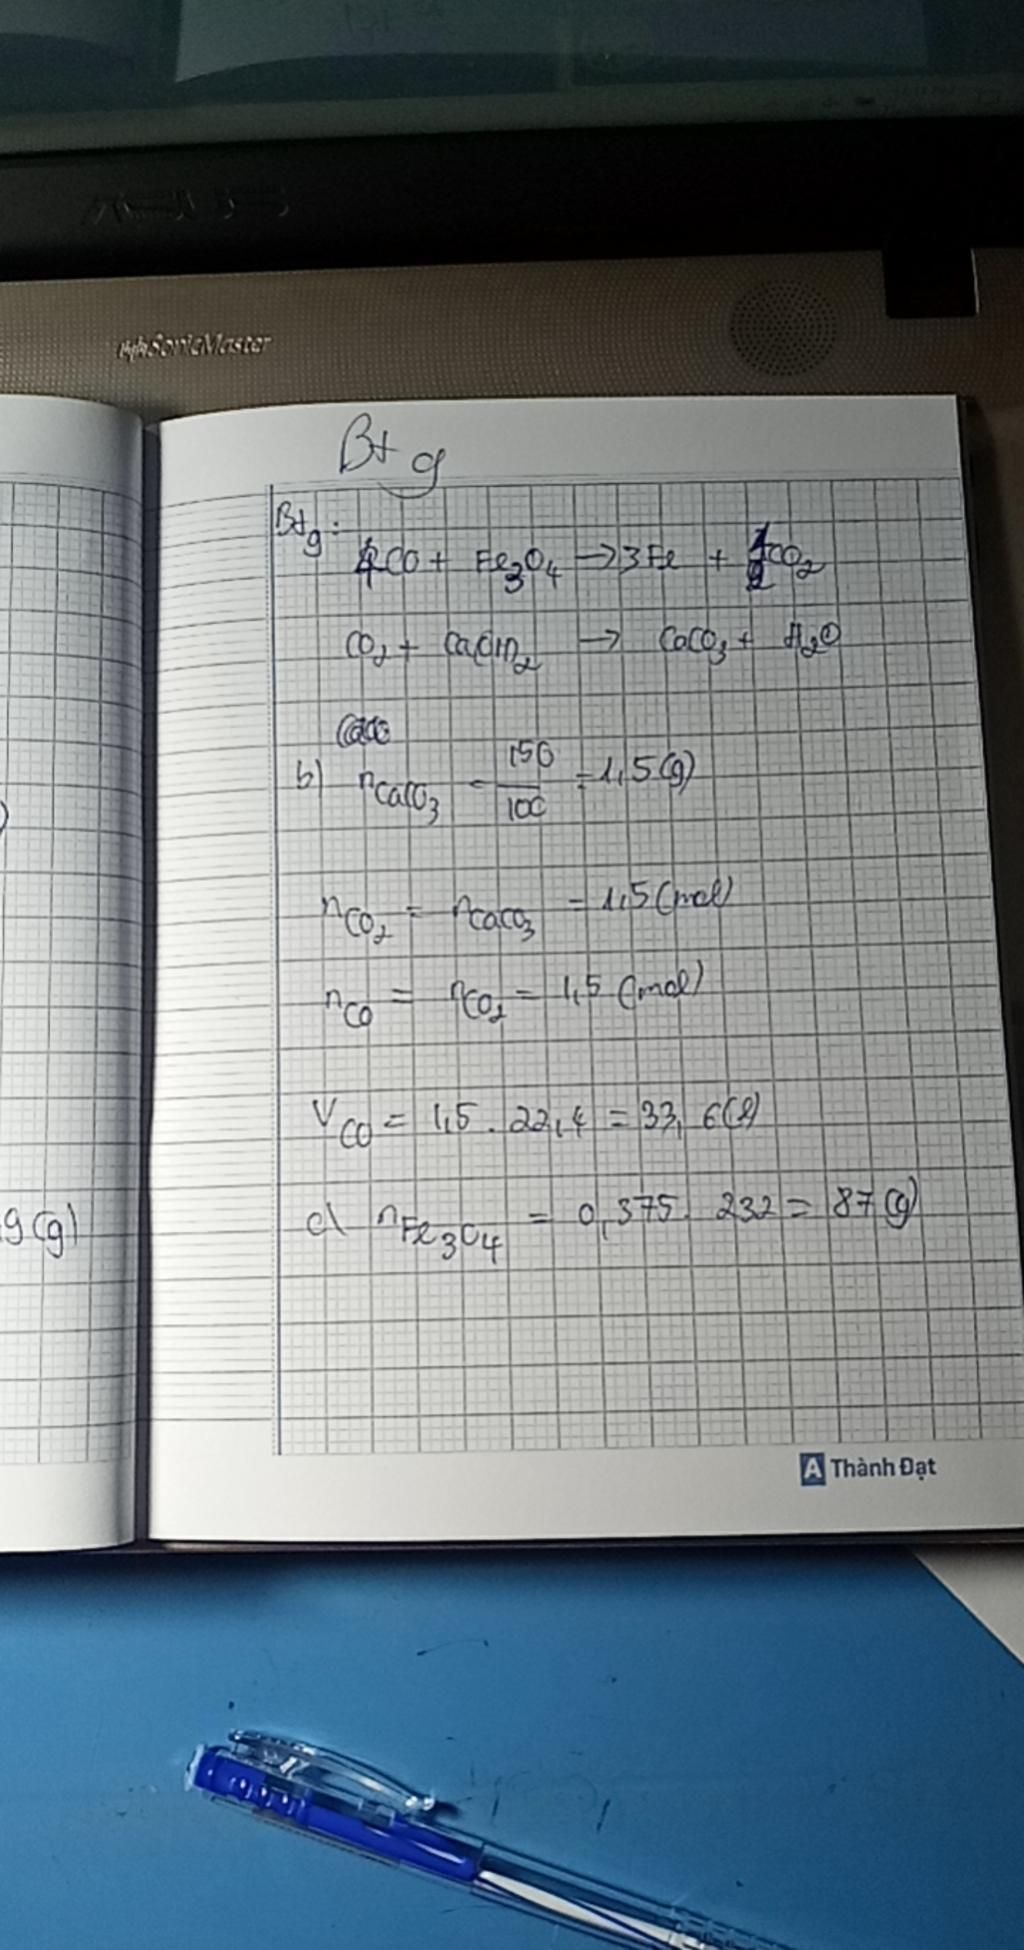 ASUS
SonicMaster
Bt 9
Bt9:
4CO + Fe3O4 → 3Fe + 4CO2
CO2 + Ca(OH)2 → CaCO3 + H2O
b) nCaCO3 = 150/100 = 1,5(g)
nCO2 = nCaCO3 = 1,5(mol)
nCO = nCO2 = 1,5 (mol)
VCO = 1,5 . 22,4 = 33,6(l)
c) nFe3O4 = 0,375 . 232 = 87(g)
9(g)
A Thành Đạt